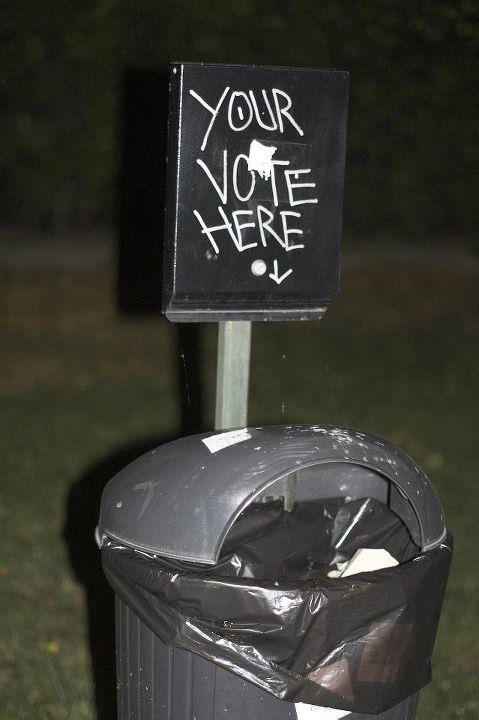 YOUR
VOTE
HERE